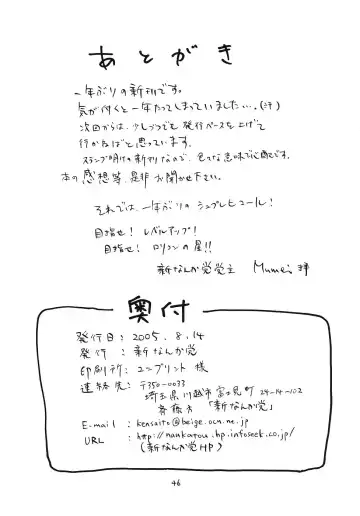 あとがき
一年ぶりの新刊です。
気が付くと一年たってしまっていました…。(汗)
次回からは、少しづつでも発行ペースを上げて
行かねばと思っています。
スランプ明けの新刊なので、色々な意味で心配です。
本の感想等、是非お聞かせ下さい。
それでは、一年ぶりの
目指せ! レベルアップ!
目指せ! ロリコンの星!!
新なんか党党主 Mumei 拝
奥付
発行日: 2005.8.14
発行: 新なんか党
印刷所: コンプリント様
連絡先: 〒350-0033
埼玉県川越市富士見町24-14-102
斉藤方 「新なんか党」
E-mail : kensaito@beige.ocn.ne.jp
URL : http://nankatou.hp.infoseek.co.jp/
(新なんか党HP)
46